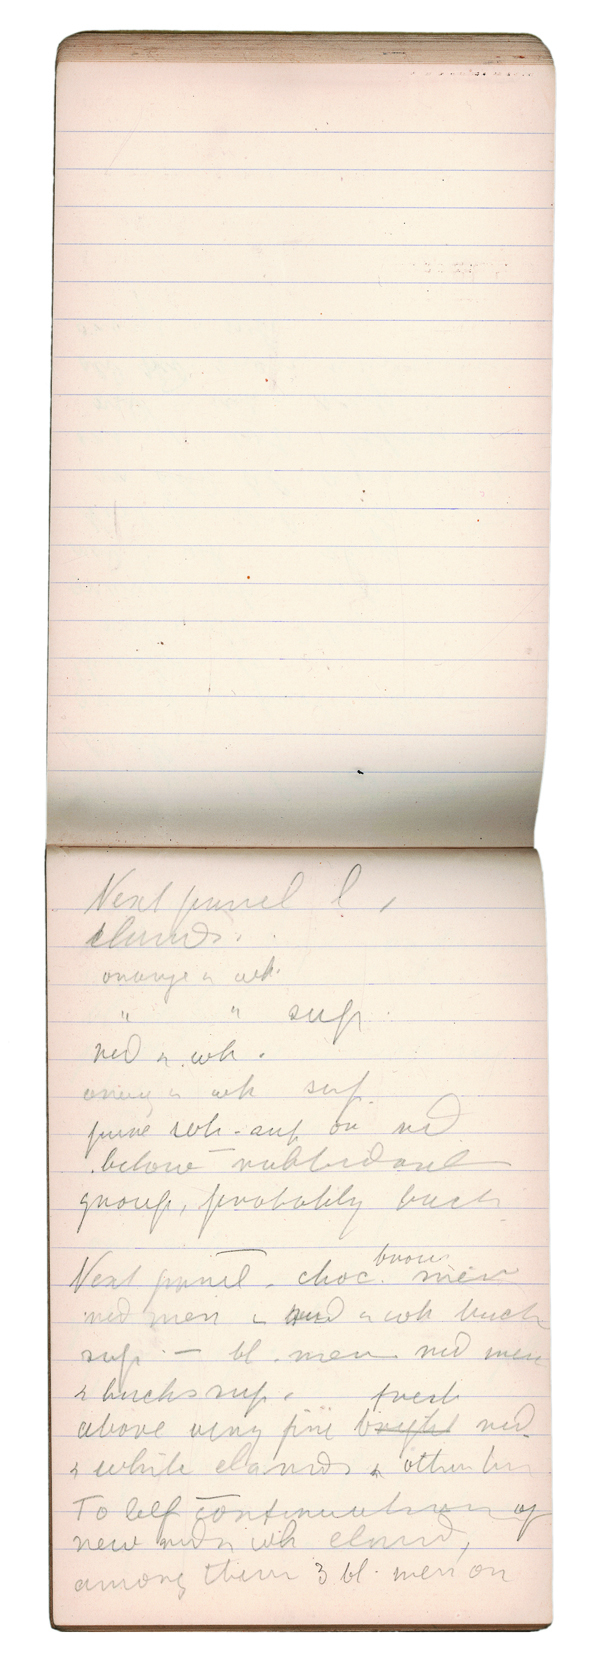 Next panel l,
elands.
orange & wh.
" " sup.
red & wh.
orange & wh sup.
pure wh. sup on red
below rubbed out
group, probably buck
Next panel. choc. brown men
red men & red & wh buck
sup. — bl. men red men
& bucks sup.
above very fine bright fresh red
& white elands & other
To left continuation of
new red & wh eland,
among them 3 bl. men on